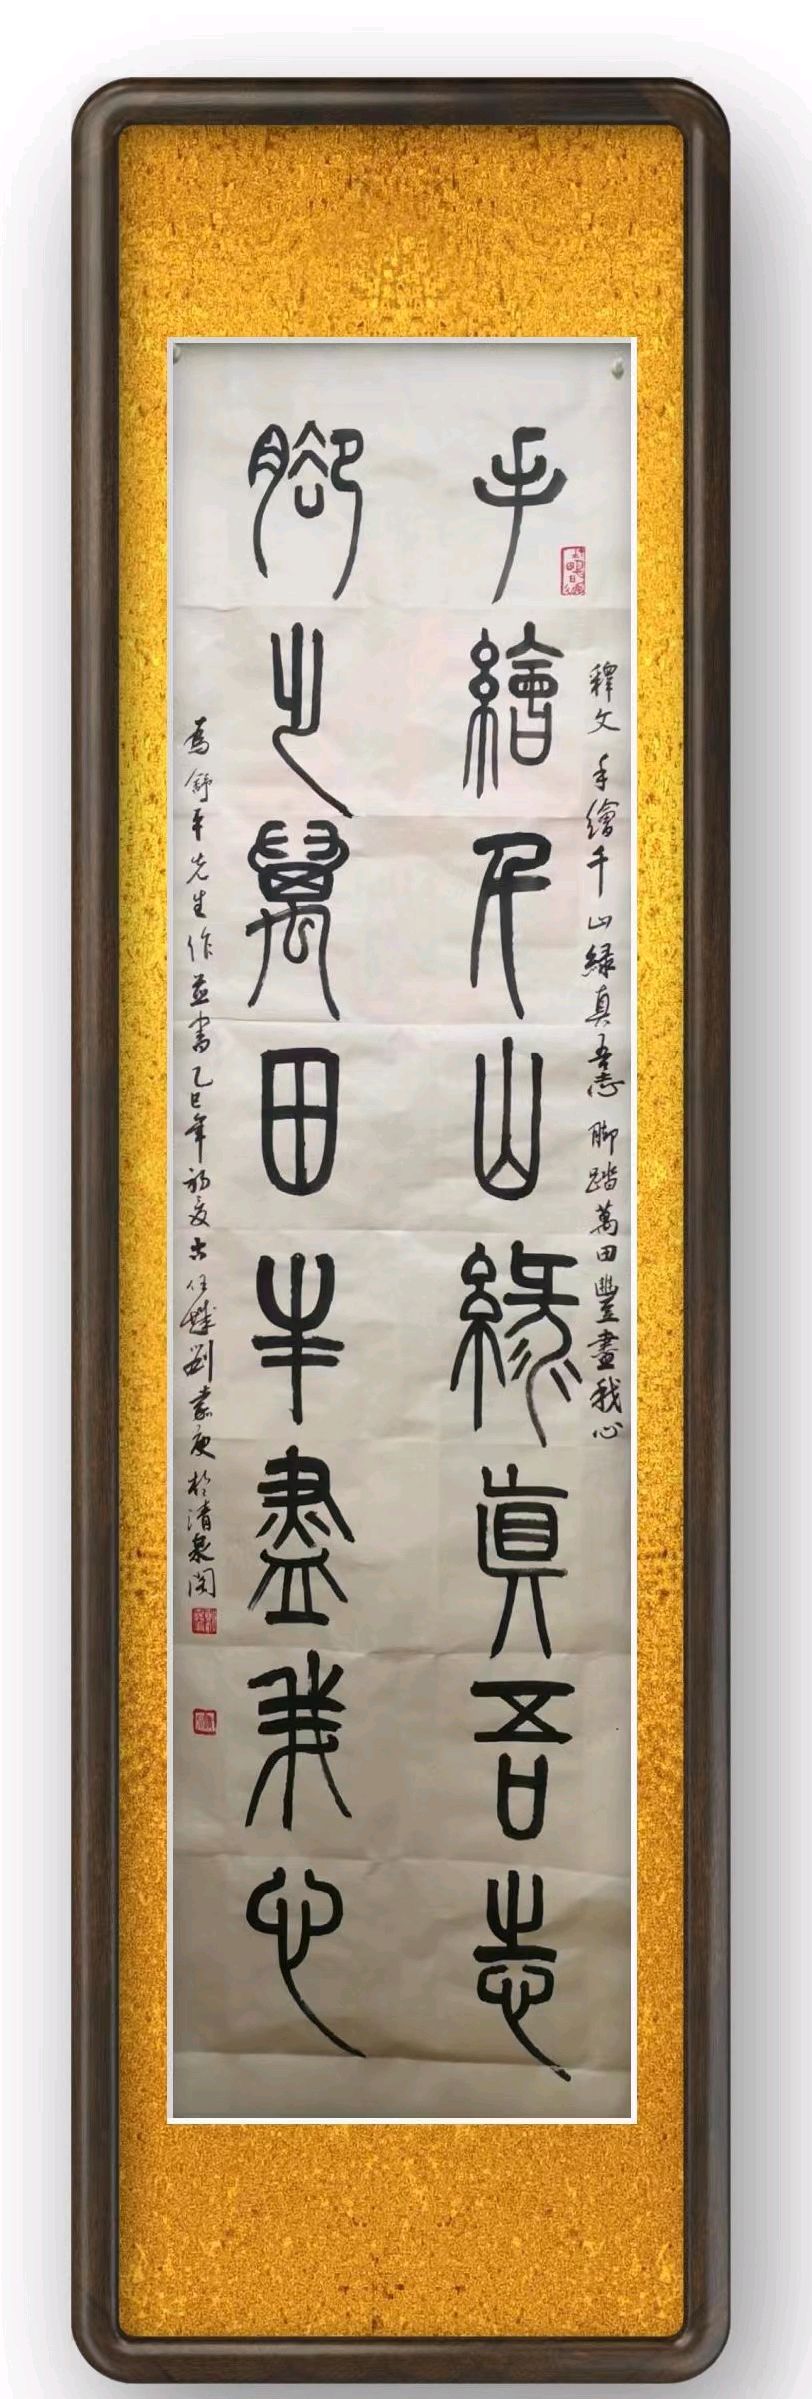 釋文 手繪千山緑真吾志 脚踏萬田豐盡我心
手繪千山緑真吾志
脚之萬田丰盡我心
爲舒平先生作並書乙巳年初夏古任城劉庚於清泉閣